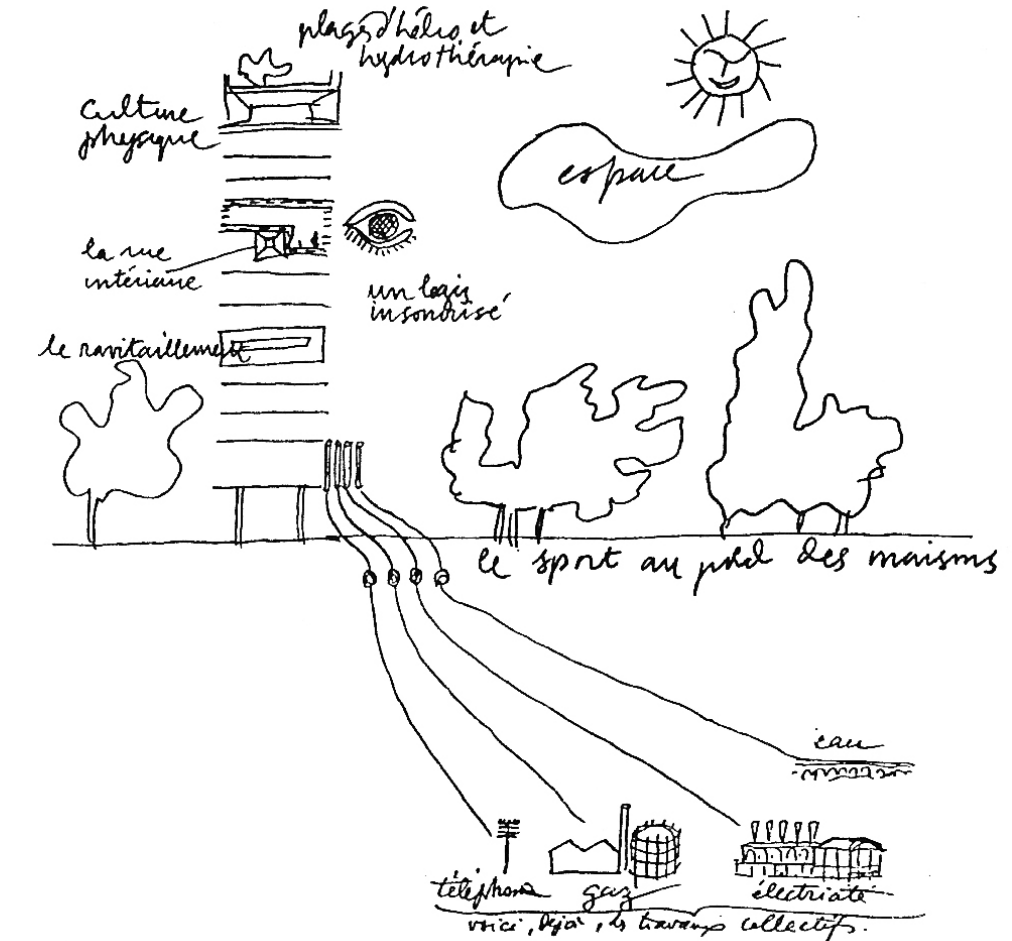 plages d'hélio et
hydrothérapie
Culture
physique
espace
la rue
intérieure
un logis
insonorisé
le ravitaillement
le sport au pied des maisons
eau
téléphone
gaz
électricité
voici, déjà, des travaux collectifs.